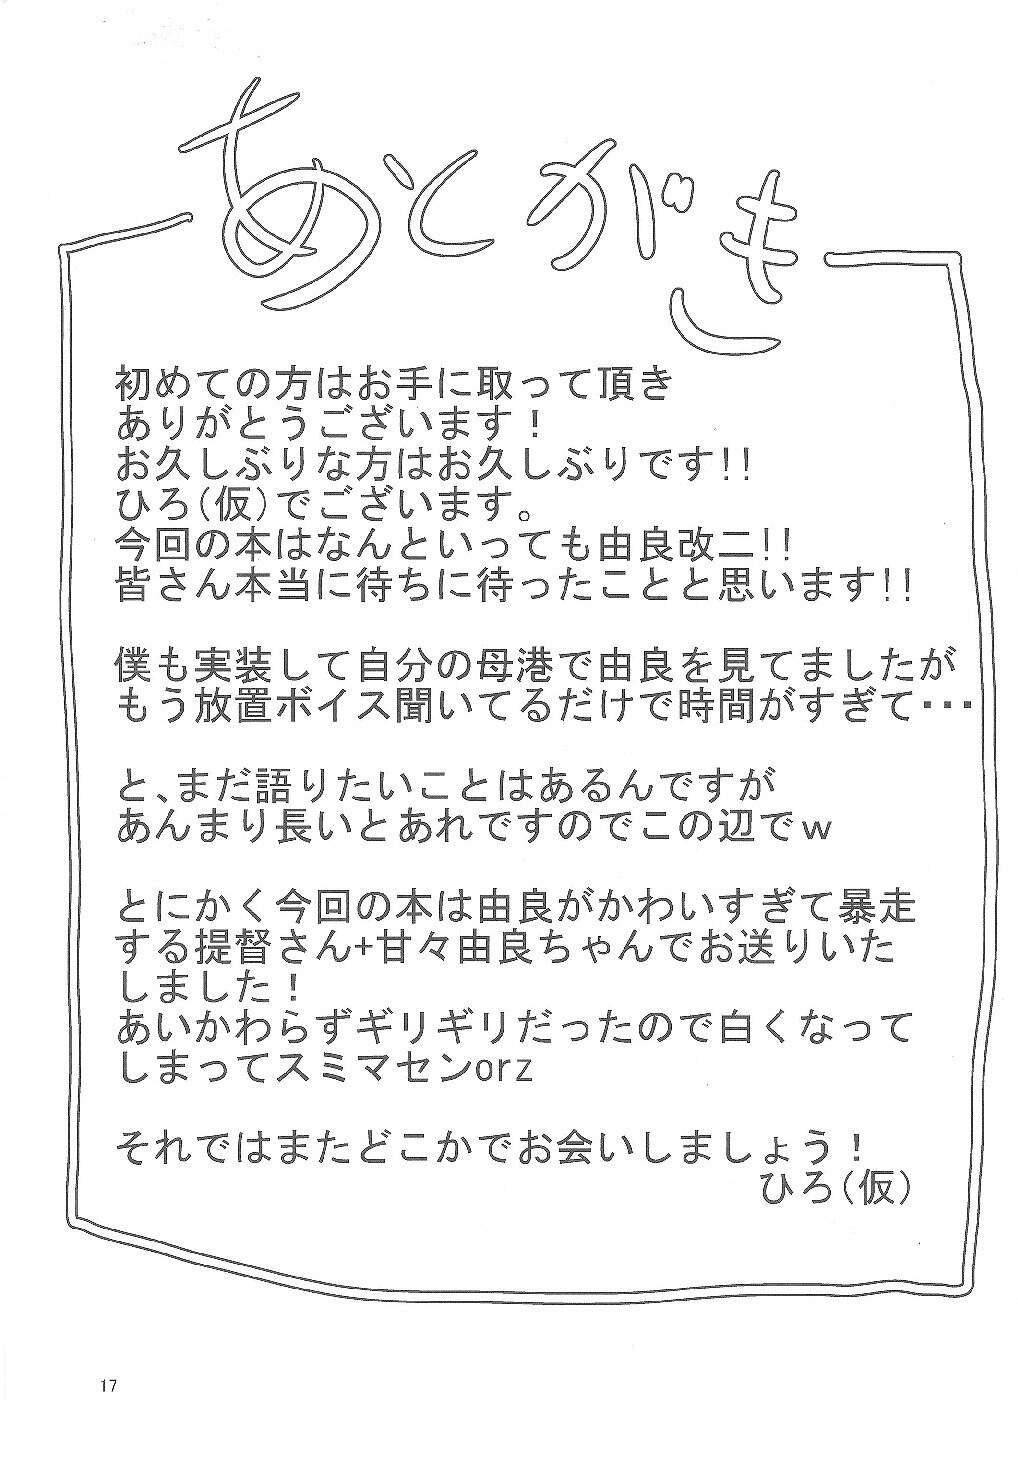 あとがき
初めての方はお手に取って頂き
ありがとうございます！
お久しぶりな方はお久しぶりです!!
ひろ(仮)でございます。
今回の本はなんといっても由良改二!!
皆さん本当に待ちに待ったことと思います!!
僕も実装して自分の母港で由良を見てましたが
もう放置ボイス聞いてるだけで時間がすぎて・・・
と、まだ語りたいことはあるんですが
あんまり長いとあれですのでこの辺でｗ
とにかく今回の本は由良がかわいすぎて暴走
する提督さん+甘々由良ちゃんでお送りいた
しました！
あいかわらずギリギリだったので白くなって
しまってスミマセンorz
それではまたどこかでお会いしましょう！
ひろ(仮)
17